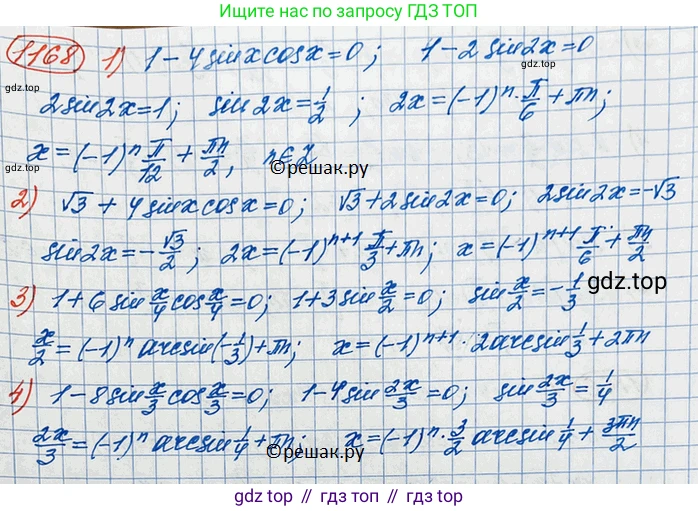 Ищите нас по запросу ГДЗ ТОП
1168 1) 1 - 4 sin x cos x = 0; 1 - 2 sin 2x = 0
gdz.top
2 sin 2x = 1; sin 2x = 1/2; 2x = (-1)^n · π/6 + πn;
x = (-1)^n π/12 + πn/2, n∈Z
©решак.ру
2) √3 + 4 sin x cos x = 0; √3 + 2 sin 2x = 0; 2 sin 2x = -√3
sin 2x = -√3/2; 2x = (-1)^(n+1) π/3 + πn; x = (-1)^(n+1) π/6 + πn/2
gdz.top
3) 1 + 6 sin x/4 cos x/4 = 0; 1 + 3 sin x/2 = 0; sin x/2 = -1/3
x/2 = (-1)^n arcsin(-1/3) + πn; x = (-1)^(n+1) · 2 arcsin 1/3 + 2πn
4) 1 - 8 sin x/3 cos x/3 = 0; 1 - 4 sin 2x/3 = 0; sin 2x/3 = 1/4
2x/3 = (-1)^n arcsin 1/4 + πn; x = (-1)^n · 3/2 arcsin 1/4 + 3πn/2
©решак.ру
gdz.top // гдз.топ // gdz.top // гдз.топ